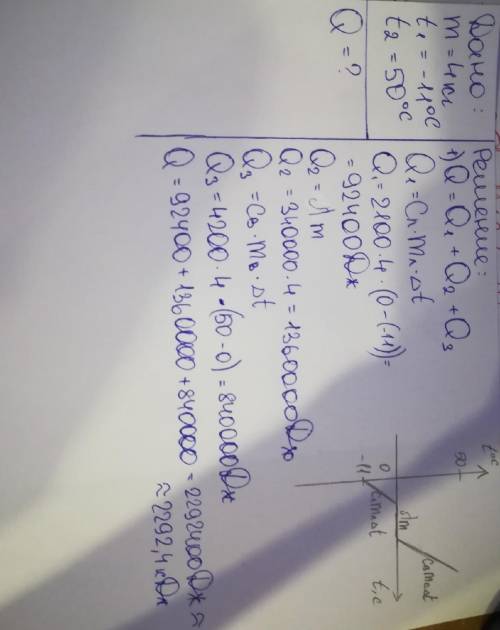 Дано:
m = 4 кг
t₁ = -11°C
t₂ = 50°C
Q = ?
Решение:
1) Q = Q₁ + Q₂ + Q₃
Q₁ = Cл·mл·Δt
Q₁ = 2100·4·(0-(-11)) =
= 92400 Дж
Q₂ = λm
Q₂ = 340000·4 = 1360000 Дж
Q₃ = Cв·mв·Δt
Q₃ = 4200·4·(50-0) = 840000 Дж
Q = 92400 + 1360000 + 840000 = 2292400 Дж ≈
≈ 2292,4 кДж
t°C
50
0
-11
λm
t, c